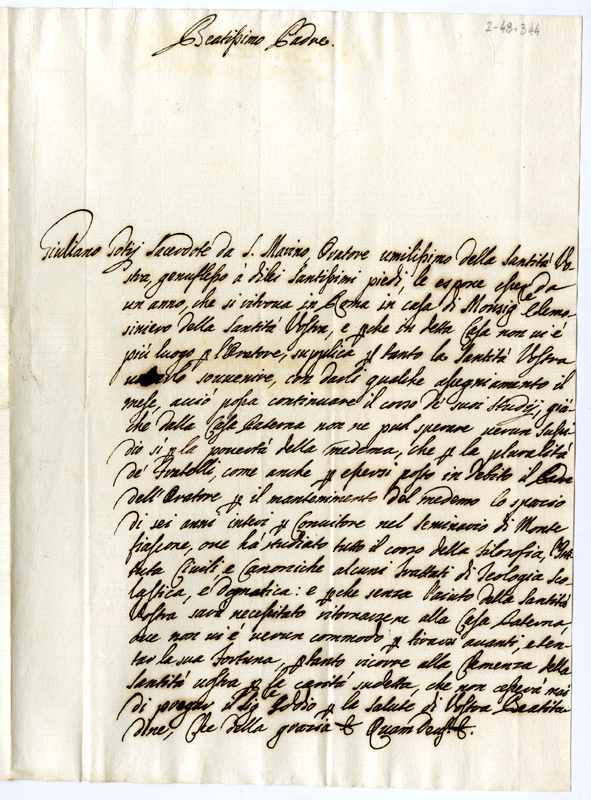 2-48-344
Beatissimo Padre.
Giuliano Sacerdote da S. Marino Oratore umilissimo della Santità Vo-
stra, genuflesso à di lei Santissimi piedi, le espone esser da
un anno, che si ritrova in Roma in casa di Monsig.re Elemo-
siniero della Santità Vostra, e p che in detta Casa non vi é
più luogo p l'Oratore, supplica p tanto la Santità Vostra
souvenire, con darli qualche assegniamento il
mese, acciò possa continuare il corso de' suoi studij, già
che dalla Casa Paterna non ne può sperare verun sussi-
dio sì p la povertà della medema, che p la pluralità
de' Fratelli, come anche p essersi posto in debito il Padre
dell'Oratore p il mantenimento del medemo lo spazio
di sei anni intieri p Convitore nel Seminario di Monte
fiascone, ove hà studiato tutto il corso della filosofia, Insti-
tuta Civili, e Canoniche alcuni trattati di Teologia Sco-
lastica, e Dogmatica: e p che senza l'aiuto della Santità
Vostra sarà necessitato ritornarsene alla Casa Paterna,
dove non vi é verun commodo p tirarsi avanti, e ten-
tar la sua Fortuna, p tanto ricorre alla Clemenza della
Santità vostra p la carità sudetta, che non cesserà mai
di pregar il Sig.re Iddio p la salute di Vostra Beatitu-
dine, Che della grazia & Quam Deus &.